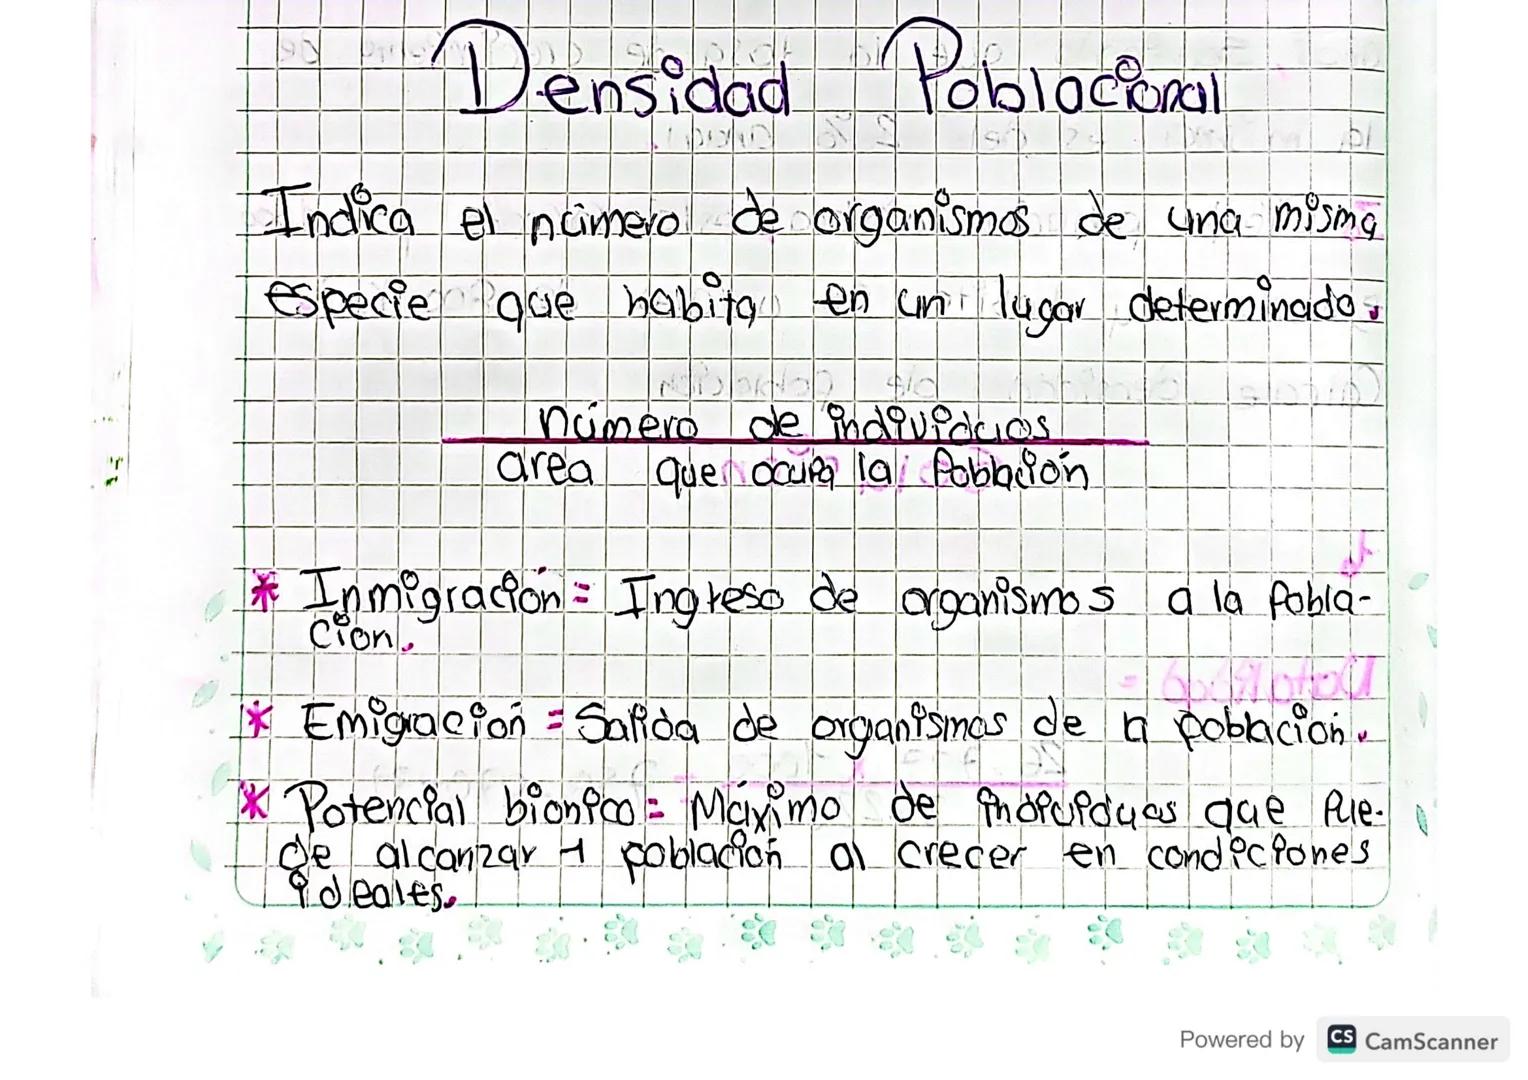 Densidad Poblacional
Indica el número de organismos de una misma
especie que habita en un lugar determinado.
número de individuos
area que ocupa la Población
* Inmigración = Ingreso de organismos a la Pobla-
ción.
* Emigración = Salida de organismos de a población.
* Potencial bionico = Máximo de individuos que Pue-
de alcanzar 1 población al crecer en condiciones
ideales.
Powered by CS CamScanner